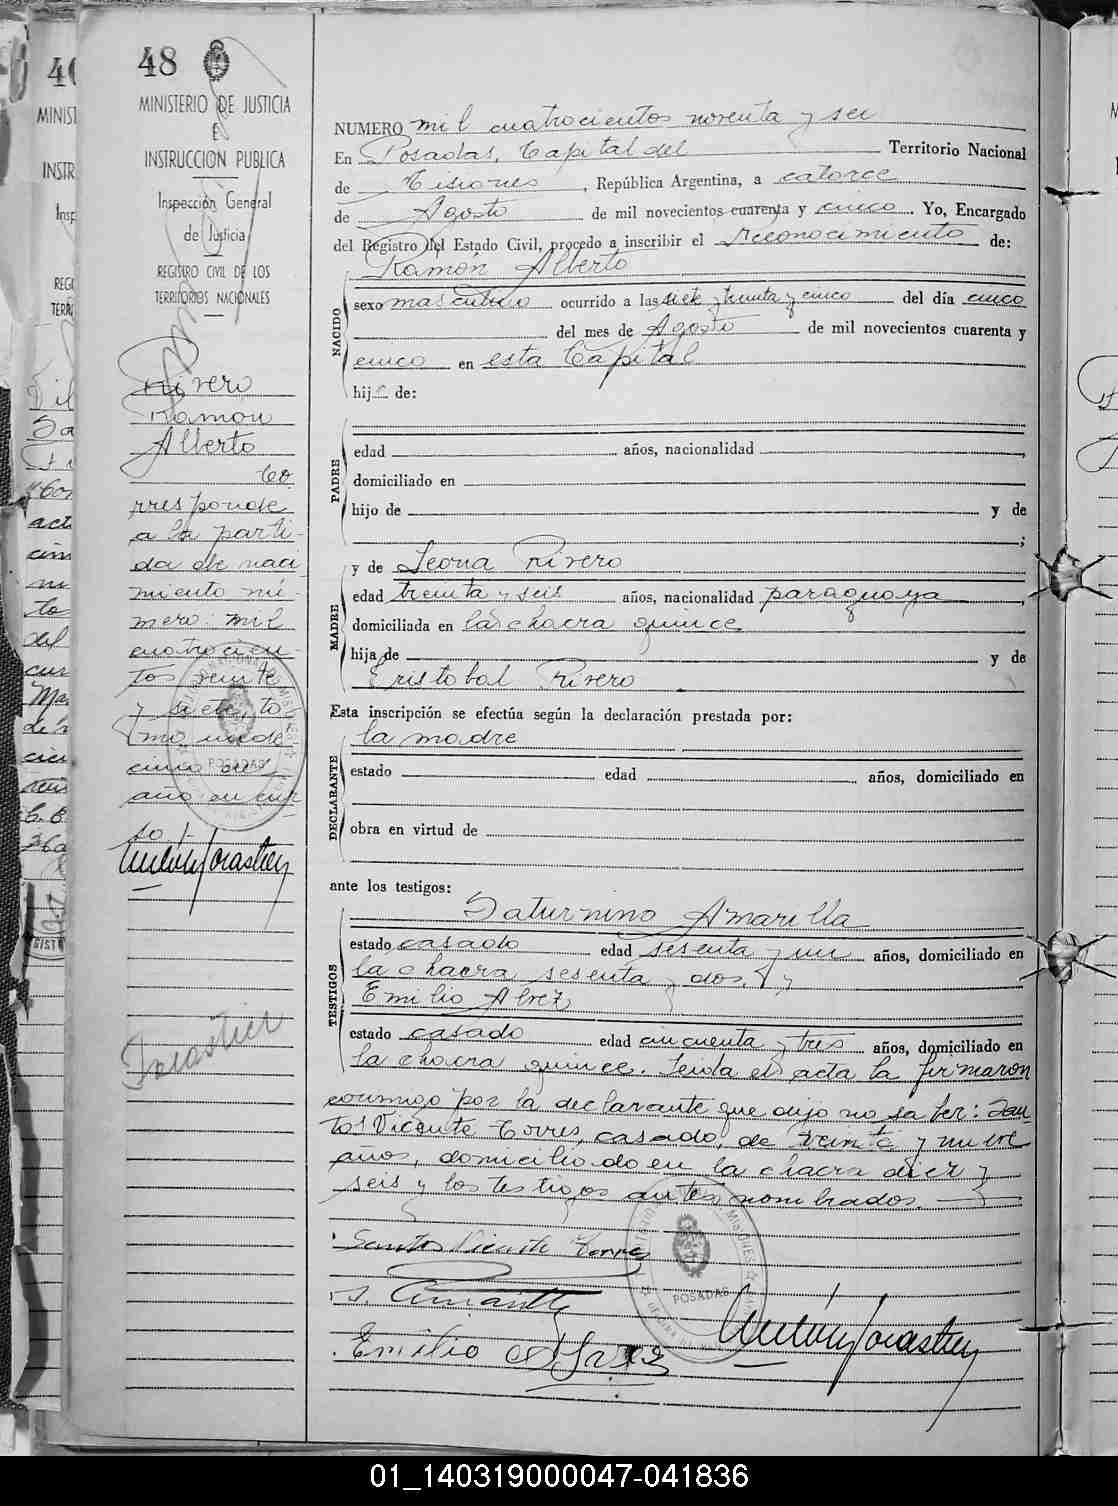 48
MINISTERIO DE JUSTICIA
E
INSTRUCCION PUBLICA
Inspección General
de Justicia
REGISTRO CIVIL DE LOS
TERRITORIOS NACIONALES
Rivero
Ramón
Alberto
Co
rresponde
a la parti-
da de naci
miento nú-
mero mil
cuatrocien-
tos veinte
y siete, to
mo
año en cur
so
NUMERO mil cuatrocientos noventa y seis
En Posadas, Capital del Territorio Nacional
de Misiones, República Argentina, a catorce
de Agosto de mil novecientos cuarenta y cinco. Yo, Encargado
del Registro del Estado Civil, procedo a inscribir el reconocimiento de:
Ramón Alberto
NACIDO
sexo masculino ocurrido a las siete y treinta y cinco del día cinco
del mes de Agosto de mil novecientos cuarenta y
cinco en esta Capital
hijo de:
PADRE
edad años, nacionalidad ,
domiciliado en
hijo de y de
;
MADRE
y de Leona Rivero
edad treinta y seis años, nacionalidad paraguaya,
domiciliada en la chacra quince
hija de y de
Cristobal Rivero
Esta inscripción se efectúa según la declaración prestada por:
DECLARANTE
la madre
estado edad años, domiciliado en
obra en virtud de
ante los testigos:
TESTIGOS
Saturnino Amarilla
estado casado edad sesenta y un años, domiciliado en
la chacra sesenta y dos, y
Emilio Alvez
estado casado edad cincuenta y tres años, domiciliado en
la chacra quince. Leída el acta la firmaron
conmigo por la declarante que dijo no saber: San
tos Vicente Torres, casado, de treinta y nueve
años, domiciliado en la chacra diez y
seis y los testigos antes nombrados.
Santos Vicente Torres
S. Amarilla
Emilio Alvez
POSADAS
POSADAS
01_140319000047-041836